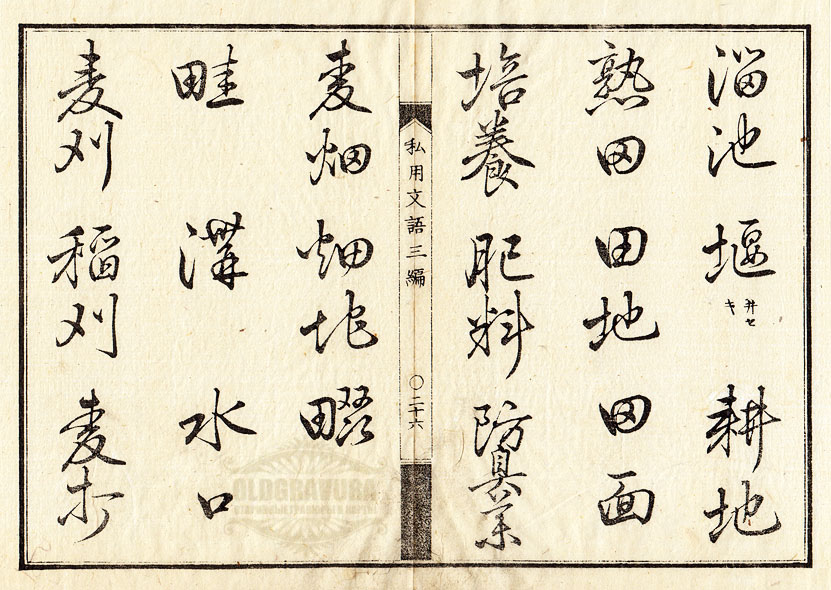 溜池 堰 ヰセキ 耕地
熟田 田地 田面
培養 肥料
私用文語三編 〇二十六
麦畑 畑地 畷
畦 溝 水口
麦刈 稲刈 麦打
OLDGRAVURA
СТАРИННЫЕ ГРАВЮРЫ И КАРТЫ